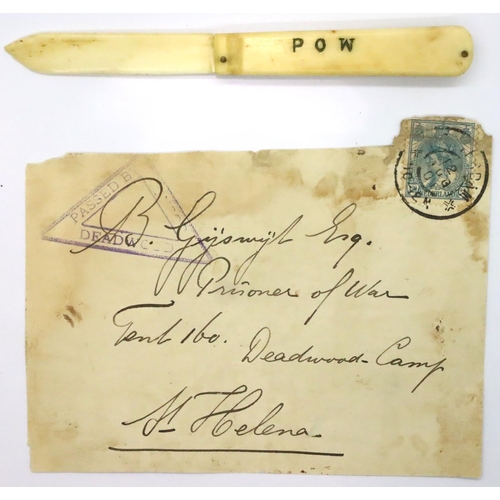 POW
PASSED B
DEADWOOD
B. Gijswijt Esq.
Prisoner of War
Tent 160. Deadwood-Camp
St Helena.